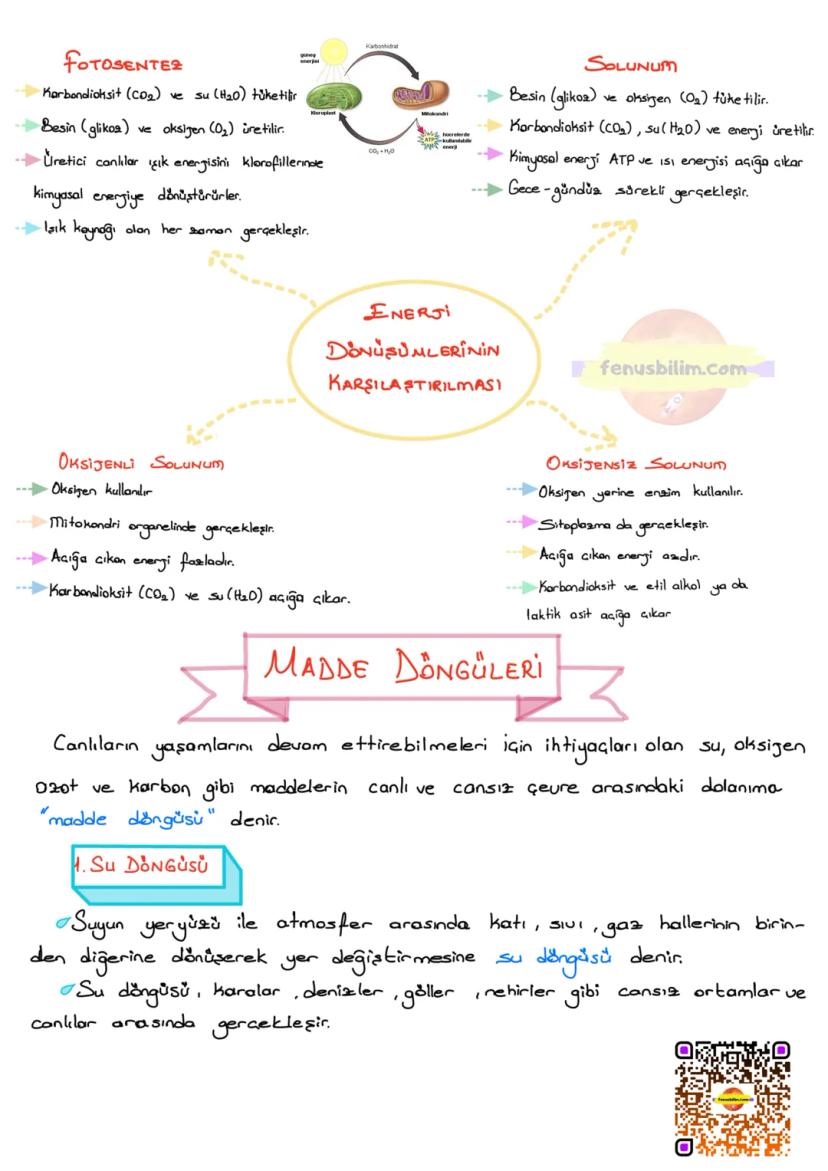 FOTOSENTEZ
Karbondioksit (CO₂) ve su (H₂O) tüketilir
Besin (glikoz) ve oksijen (O₂) üretilir.
Üretici canlılar ışık enerjisini klorofillerinde
kimyasal enerjiye dönüştürürler.
Işık kaynağı olan her zaman gerçekleşir.
güneş
enerjisi
Karbonhidrat
Kloroplast
Mitokondri
ATP
hücrelerde
kullanılabilir
enerji
CO₂ + H₂O
SOLUNUM
Besin (glikoz) ve oksijen (O₂) tüketilir.
Karbondioksit (CO₂), su (H₂O) ve enerji üretilir
Kimyasal enerji ATP ve ısı enerjisi açığa çıkar
Gece-gündüz sürekli gerçekleşir.
ENERJİ
DÖNÜŞÜMLERİNİN
KARŞILAŞTIRILMASI
fenusbilim.com
OKSİJENLİ SOLUNUM
Oksijen kullanılır
Mitokondri organelinde gerçekleşir.
Açığa çıkan enerji fazladır.
Karbondioksit (CO₂) ve su (H₂O) açığa çıkar.
OKSİJENSİZ SOLUNUM
Oksijen yerine enzim kullanılır.
Sitoplazma da gerçekleşir.
Açığa çıkan enerji azdır.
Karbondioksit ve etil alkol ya da
laktik asit açığa çıkar
MADDE DÖNGÜLERİ
Canlıların yaşamlarını devam ettirebilmeleri için ihtiyaçları olan su, oksijen
azot ve karbon gibi maddelerin canlı ve cansız çevre arasındaki dolanıma
"madde döngüsü" denir.
1. SU DÖNGÜSÜ
Suyun yeryüzü ile atmosfer arasında katı, sıvı, gaz hallerinin birin-
den diğerine dönüşerek yer değiştirmesine su döngüsü denir.
Su döngüsü, karalar, denizler, göller, nehirler gibi cansız ortamlar ve
canlılar arasında gerçekleşir.
fenusbilim.com